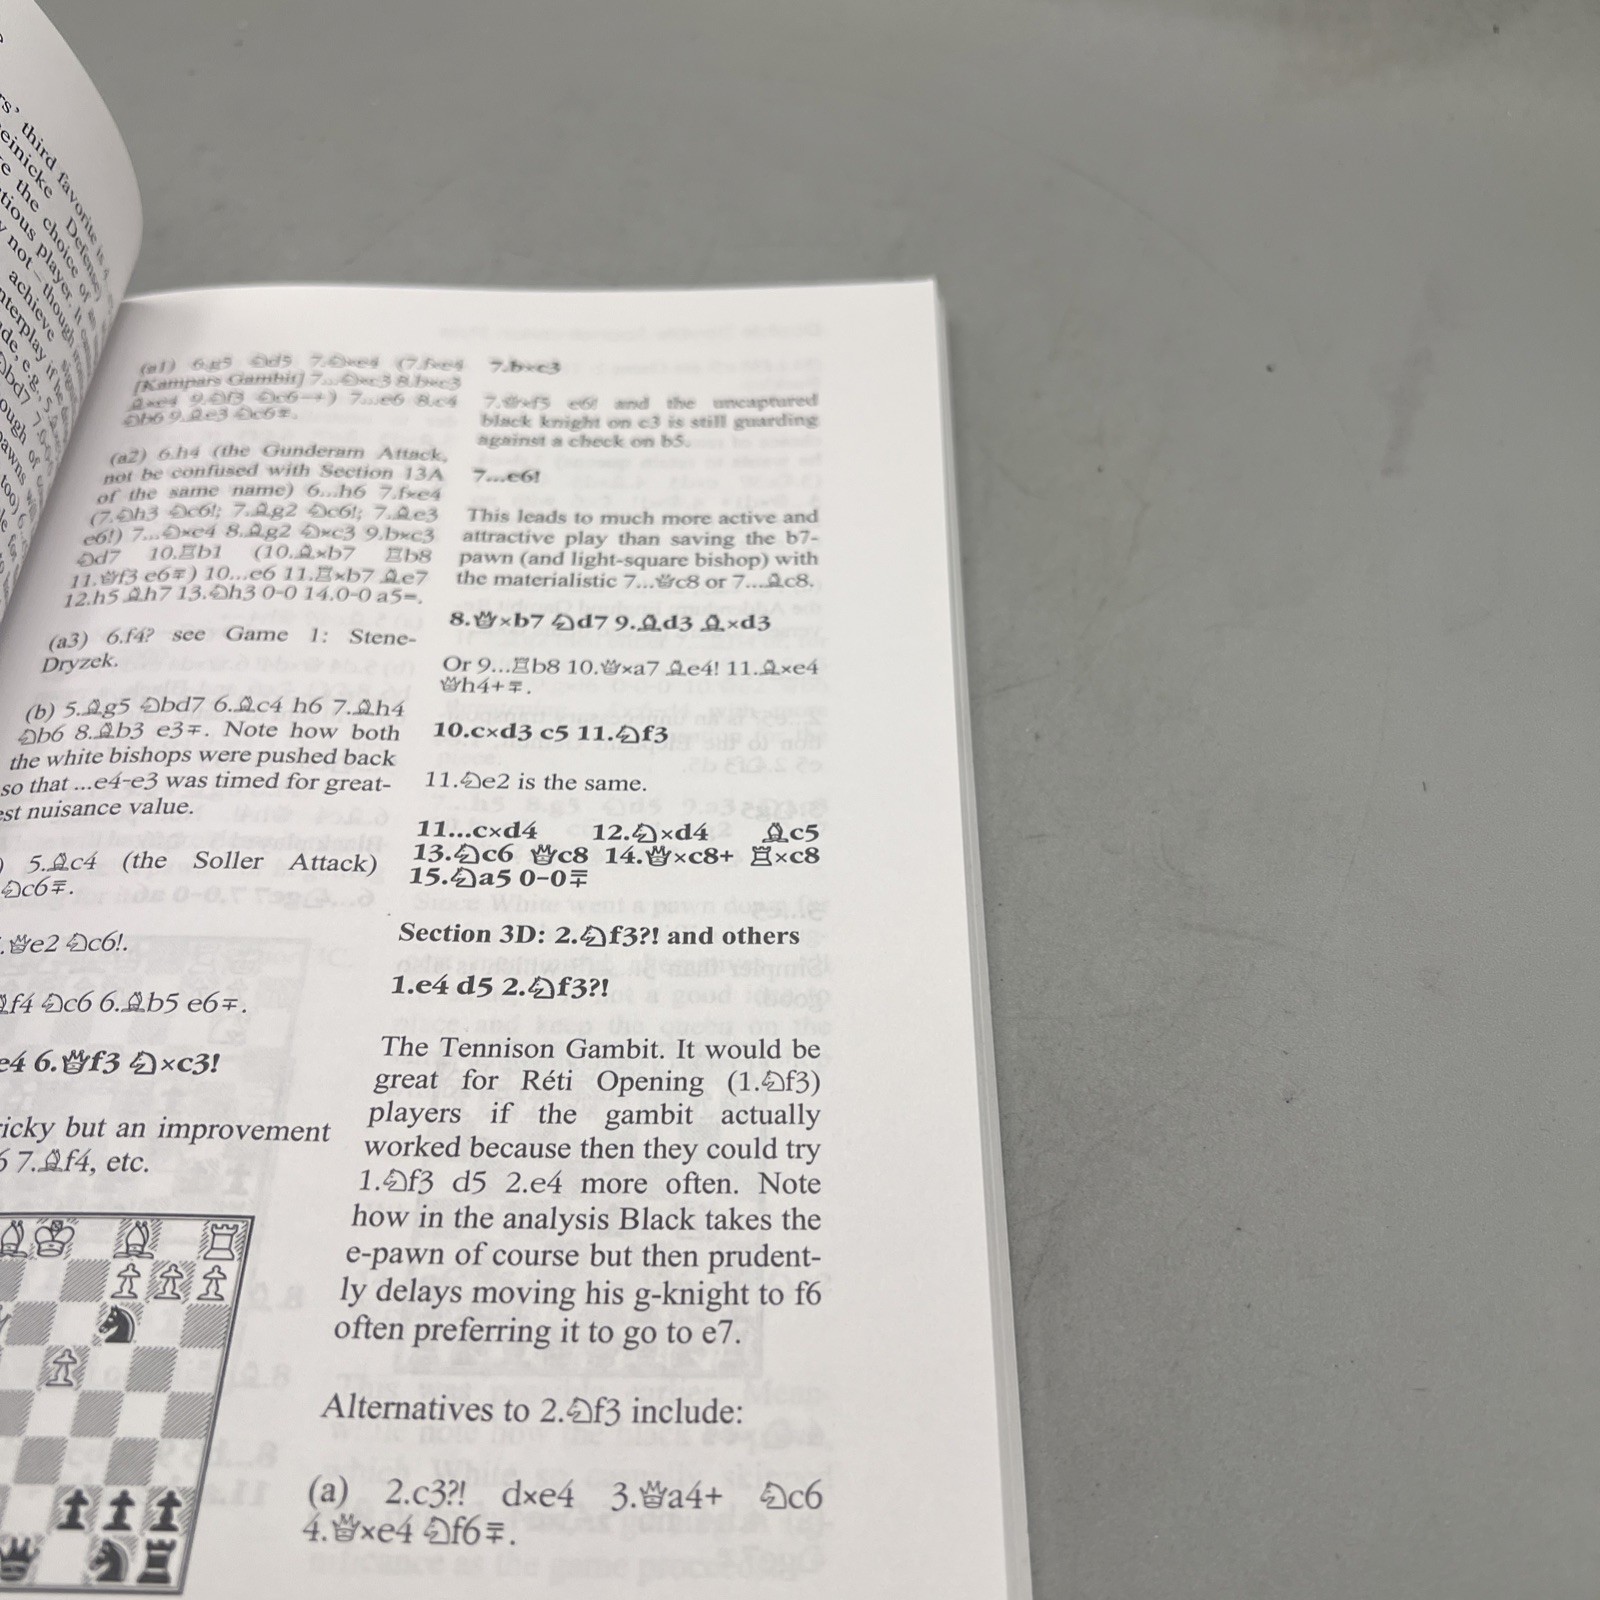 rs' third favorite is 4.
einicke Defense)
re the choice of
tious player. It
y not – though
achieve
nterplay if he
de, e.g., 5.
♘bd7 7.
ough of
pawns
too) 6.
(a1) 6.g5 ♘d5 7.♘×e4 (7.f×e4
[Kampars Gambit] 7...♘×c3 8.b×c3
♗×e4 9.♘f3 ♘c6–+) 7...e6 8.c4
♘b6 9.♗e3 ♘c6∓.
(a2) 6.h4 (the Gunderam Attack,
not be confused with Section 13A
of the same name) 6...h6 7.f×e4
(7.♘h3 ♘c6!; 7.♗g2 ♘c6!; 7.♗e3
e6!) 7...♘×e4 8.♗g2 ♘×c3 9.b×c3
♘d7 10.♖b1 (10.♗×b7 ♖b8
11.♕f3 e6∓) 10...e6 11.♖×b7 ♗e7
12.h5 ♗h7 13.♘h3 0-0 14.0-0 a5=.
(a3) 6.f4? see Game 1: Stene-
Dryzek.
(b) 5.♗g5 ♘bd7 6.♗c4 h6 7.♗h4
♘b6 8.♗b3 e3∓. Note how both
the white bishops were pushed back
so that ...e4-e3 was timed for great-
est nuisance value.
) 5.♗c4 (the Soller Attack)
♘c6∓.
.♕e2 ♘c6!.
♗f4 ♘c6 6.♗b5 e6∓.
e4 6.♕f3 ♘×c3!
ricky but an improvement
6 7.♗f4, etc.
7.b×c3
7.♕×f5 e6! and the uncaptured
black knight on c3 is still guarding
against a check on b5.
7...e6!
This leads to much more active and
attractive play than saving the b7-
pawn (and light-square bishop) with
the materialistic 7...♕c8 or 7...♗c8.
8.♕×b7 ♘d7 9.♗d3 ♗×d3
Or 9...♖b8 10.♕×a7 ♗e4! 11.♗×e4
♕h4+∓.
10.c×d3 c5 11.♘f3
11.♘e2 is the same.
11...c×d4 12.♘×d4 ♗c5
13.♘c6 ♕c8 14.♕×c8+ ♖×c8
15.♘a5 0-0∓
Section 3D: 2.♘f3?! and others
1.e4 d5 2.♘f3?!
The Tennison Gambit. It would be
great for Réti Opening (1.♘f3)
players if the gambit actually
worked because then they could try
1.♘f3 d5 2.e4 more often. Note
how in the analysis Black takes the
e-pawn of course but then prudent-
ly delays moving his g-knight to f6
often preferring it to go to e7.
Alternatives to 2.♘f3 include:
(a) 2.c3?! d×e4 3.♕a4+ ♘c6
4.♕×e4 ♘f6∓.